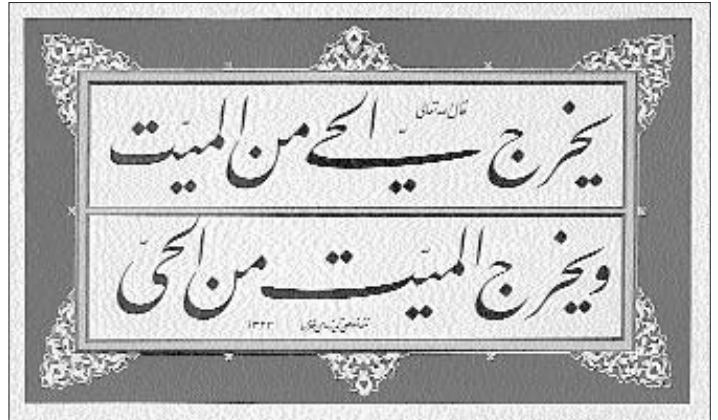 قال الله تعالى
يخرج الحي من الميّت
ويخرج الميّت من الحيّ
١٣٢٣